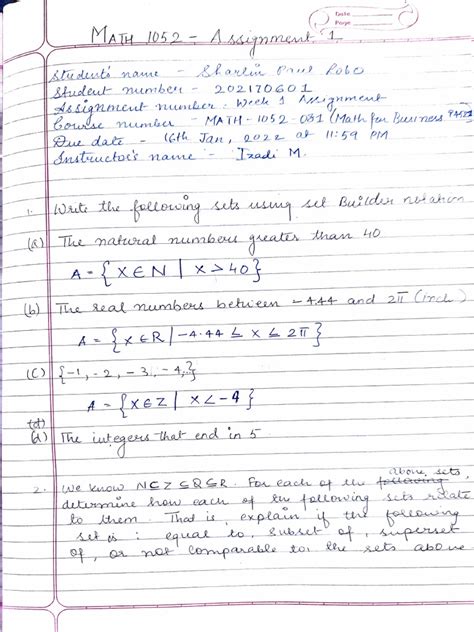 Date
Page
MATH 1052 - Assignment 1
Student's name - Sharlin Paul
Student number - 202170601
Assignment number - Week 1 Assignment
Course number - MATH-1052-031 (Math for Business
Due date - 16th Jan, 2022 at 11:59 PM
Instructor's name - Izadi M.
1. Write the following sets using set Builder notation
(a) The natural numbers greater than 40
A = { X∈N | X>40}
(b) The real numbers between -4.44 and 2π (incl.)
A = { x∈R | -4.44 ≤ x ≤ 2π }
(C) {-1, -2, -3, -4,}
A = {X∈Z | X<-4}
(d)
(d) The integers that end in 5
2. We know N⊆Z⊆Q⊆R. For each of the following above sets,
determine how each of the following sets relate
to them. That is, explain if the following
set is : equal to, subset of, superset
of, or not comparable to, the sets above